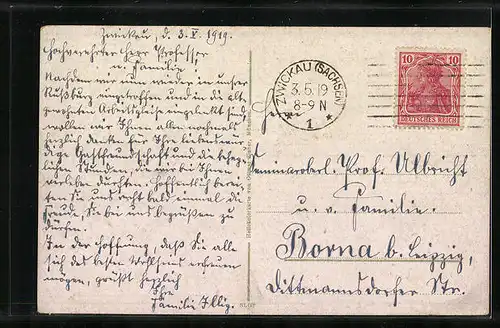 Zwickau, d. 3. V. 1919.
Hochverehrter Herr Professor
u. Familie!
Nachdem wir nun wieder in unser
Rußburg eingetroffen und in die alt-
gewohnten Arbeitsgleise eingelenkt sind
wollen wir Ihnen allen nochmals
herzlich danken für Ihre liebenswür-
dige Gastfreundschaft und die
Stunden, die wir bei Ihnen
verleben durften. Hoffentlich berei-
ten Sie uns recht bald einmal die
Freude, Sie bei uns begrüßen zu
dürfen.
In der Hoffnung, daß Sie alle
sich des besten Wohlseins erfreuen
mögen, grüßt herzlich
Ihre
Familie Illig.
ZWICKAU (SACHSEN)
3.5.19
8-9 N
* 1 *
10 10
DEUTSCHES REICH
Herrn
Seminaroberl. Prof. Ulbricht
u. v. Familie.
Borna b. Leipzig,
Dittmannsdorfer Str.